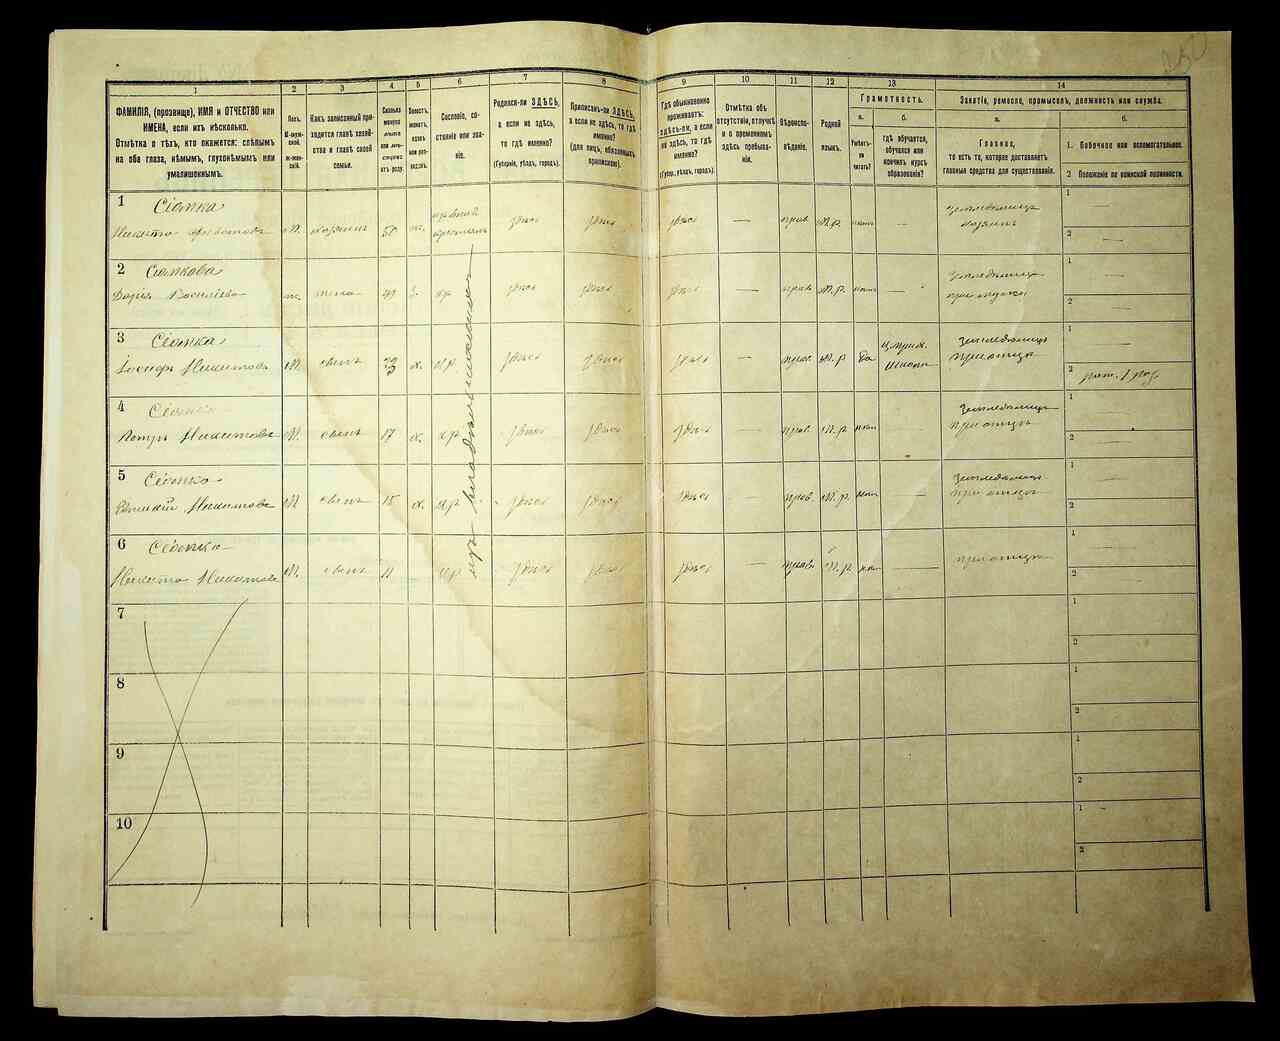 1 2 3 4 5 6 7 8 9 10 11 12 13 14
ФАМИЛІЯ, (прозвище), ИМЯ и ОТЧЕСТВО или
ИМЕНА, если ихъ нѣсколько.
Отмѣтка о тѣхъ, кто окажется: слѣпымъ
на оба глаза, нѣмымъ, глухонѣмымъ или
умалишеннымъ.
Полъ.
М-муж-
ской.
ж-жен-
скій.
Какъ записанный при-
ходится главѣ хозяй-
ства и главѣ своей
семьи.
Сколько
минуло
лѣтъ
или мѣся-
цевъ
отъ роду.
Холостъ,
женатъ,
вдовъ
или раз-
веденъ.
Сословіе, со-
стояніе или зва-
ніе.
Родился-ли ЗДѢСЬ,
а если не здѣсь,
то гдѣ именно?
(Губернія, уѣздъ, городъ).
Приписанъ-ли ЗДѢСЬ,
а если не здѣсь, то гдѣ
именно?
(для лицъ, обязанныхъ
припискою).
Гдѣ обыкновенно
проживаетъ:
здѣсь-ли, а если
не здѣсь, то гдѣ
именно?
(Губер., уѣздъ, городъ).
Отмѣтка объ
отсутствіи, отлучкѣ
и о временномъ
здѣсь пребыва-
ніи.
Вѣроиспо-
вѣданіе.
Родной
языкъ.
Грамотность.
а.
Умѣетъ-
ли
читать?
б.
гдѣ обучается,
обучался или
кончилъ курсъ
образованія?
Занятіе, ремесло, промыселъ, должность или служба.
а.
Главное,
то есть то, которое доставляетъ
главныя средства для существованія.
б.
1. Побочное или вспомогательное.
2 Положеніе по воинской повинности.
1 Сіомка
М. хозяинъ здѣсь здѣсь здѣсь — прав. М.р. —
земледѣлецъ
хозяинъ
1 —
2 —
2 Сіомкова
Дарія Василіева жена кр здѣсь здѣсь здѣсь — прав. М.р. —
1 —
2 —
3 Сіомка
Іосифъ Никитовъ М. сынъ х. кр. здѣсь здѣсь здѣсь — прав. М.р да
Земледѣлецъ
при отцѣ
1 —
2
4
Петръ Никитовъ М. сынъ 17 х. кр. здѣсь здѣсь здѣсь — прав. М.р. —
Земледѣлецъ
при отцѣ
1 —
2 —
5 Сіомка
Никитовъ М сынъ 15 х. кр. здѣсь здѣсь здѣсь — прав. М.р. —
Земледѣлецъ
при отцѣ
1 —
2
6 Сіомка
Никита Никитовъ М. сынъ 11 кр. здѣсь здѣсь здѣсь — прав. М.р. —
при отцѣ
1 —
2 —
7 1
2
8 1
2
9 1
2
10 1
2